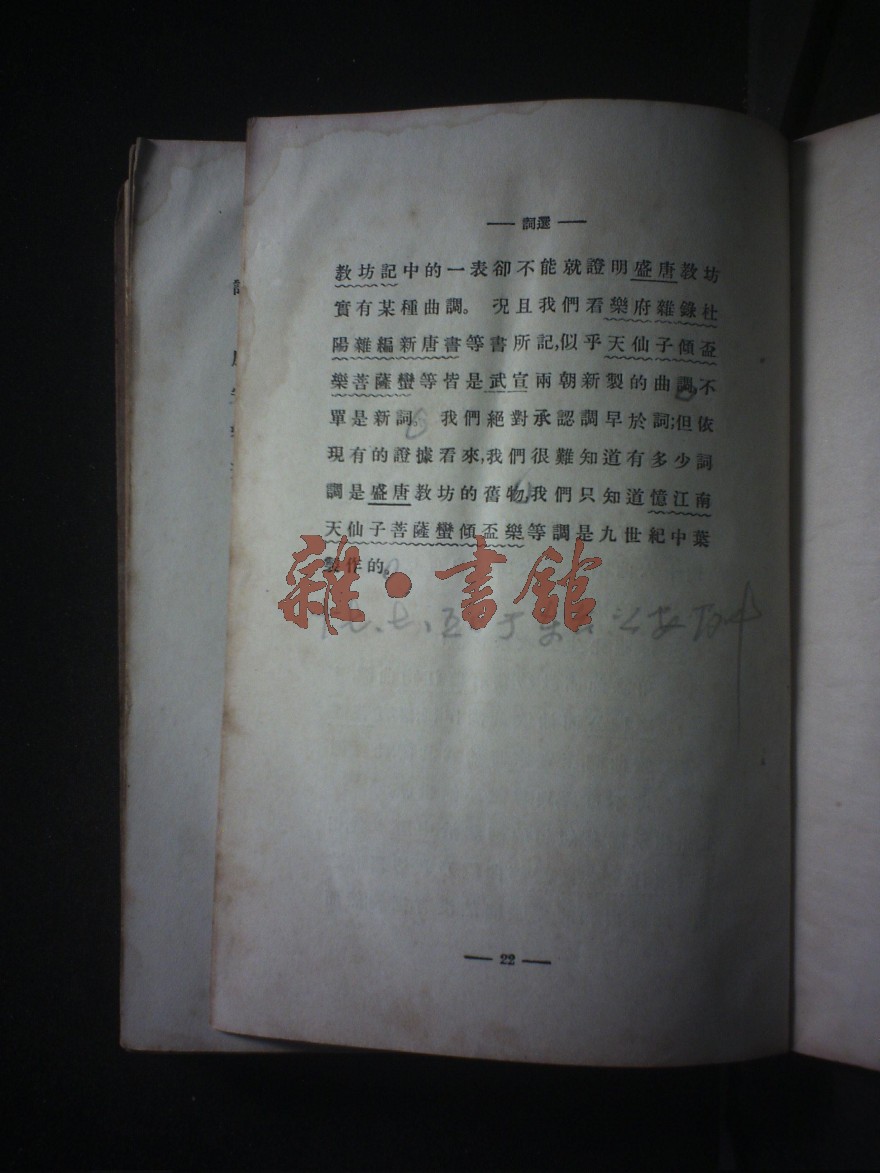 ── 詞選 ──
教坊記中的一表卻不能就證明盛唐教坊
實有某種曲調。況且我們看樂府雜錄杜
陽雜編新唐書等書所記,似乎天仙子傾盃
樂菩薩蠻等皆是武宣兩朝新製的曲調,不
單是新詞。我們絕對承認調早於詞;但依
現有的證據看來,我們很難知道有多少詞
調是盛唐教坊的舊物,我們只知道憶江南
天仙子菩薩蠻傾盃樂等調是九世紀中葉
製作的。
雜·書館
── 22 ──